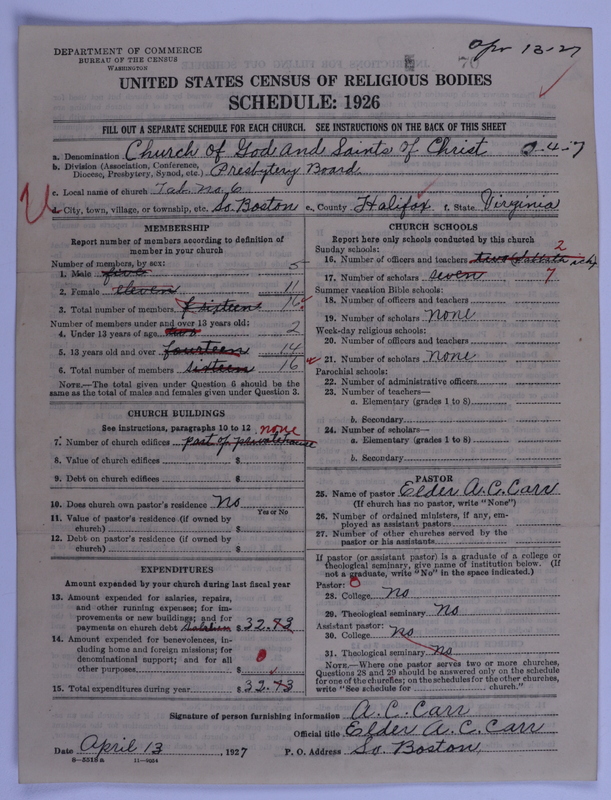 Apr 13-27
DEPARTMENT OF COMMERCE
BUREAU OF THE CENSUS
WASHINGTON
UNITED STATES CENSUS OF RELIGIOUS BODIES
SCHEDULE: 1926
FILL OUT A SEPARATE SCHEDULE FOR EACH CHURCH. SEE INSTRUCTIONS ON THE BACK OF THIS SHEET
a. Denomination Church of God And Saints of Christ 0-4-17
b. Division (Association, Conference, Diocese, Presbytery, Synod, etc.) Presbytery Board
c. Local name of church Tab. No. 6
d. City, town, village, or township, etc. So. Boston e. County Halifax f. State Virginia
MEMBERSHIP
Report number of members according to definition of
member in your church
Number of members by sex:
1. Male five 5
2. Female eleven 11
3. Total number of members sixteen 16
Number of members under and over 13 years old:
4. Under 13 years of age two 2
5. 13 years old and over fourteen 14
6. Total number of members sixteen 16
NOTE.—The total given under Question 6 should be the
same as the total of males and females given under Question 3.
CHURCH BUILDINGS
See instructions, paragraphs 10 to 12
none
7. Number of church edifices part of private house
8. Value of church edifices $
9. Debt on church edifices $
10. Does church own pastor's residence No
Yes or No
11. Value of pastor's residence (if owned by
church) $
12. Debt on pastor's residence (if owned by
church) $
EXPENDITURES
Amount expended by your church during last fiscal year
13. Amount expended for salaries, repairs,
and other running expenses; for im-
provements or new buildings; and for
payments on church debt $ 32.43
14. Amount expended for benevolences, in-
cluding home and foreign missions; for
denominational support; and for all
other purposes $ 0
15. Total expenditures during year $ 32.43
CHURCH SCHOOLS
Report here only schools conducted by this church
Sunday schools:
2
16. Number of officers and teachers two (Sabbath sch)
17. Number of scholars seven 7
Summer vacation Bible schools:
18. Number of officers and teachers
19. Number of scholars none
Week-day religious schools:
20. Number of officers and teachers
21. Number of scholars none
Parochial schools:
22. Number of administrative officers
23. Number of teachers—
a. Elementary (grades 1 to 8)
b. Secondary
24. Number of scholars—
a. Elementary (grades 1 to 8)
b. Secondary
PASTOR
25. Name of pastor Elder A. C. Carr
(If church has no pastor, write "None")
26. Number of ordained ministers, if any, em-
ployed as assistant pastors
27. Number of other churches served by the
pastor or his assistants
If pastor (or assistant pastor) is a graduate of a college or
theological seminary, give name of institution below. (If
not a graduate, write "No" in the space indicated.)
Pastor: 0
28. College No
29. Theological seminary No
Assistant pastor:
30. College No
31. Theological seminary No
NOTE.—Where one pastor serves two or more churches,
Questions 28 and 29 should be answered only on the schedule
for one of the churches; on the schedules for the other churches,
write "See schedule for church."
Signature of person furnishing information A. C. Carr
Official title Elder A. C. Carr
Date April 13, 1927 P. O. Address So. Boston
8-5518a 11-9054